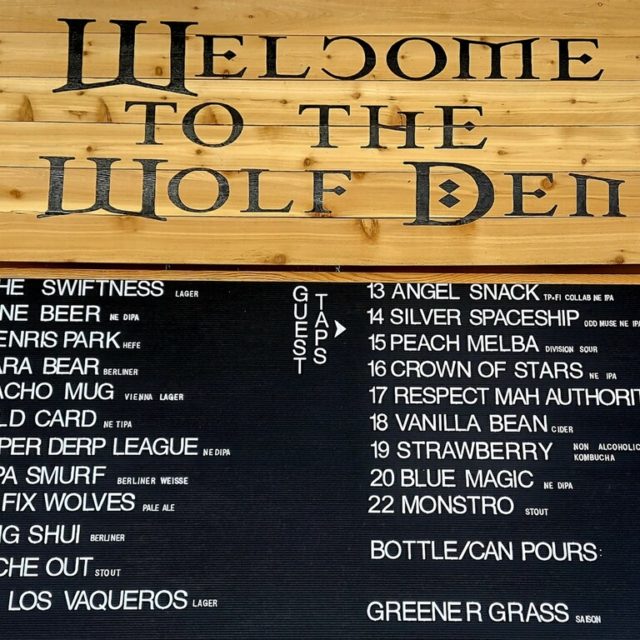 WELCOME
TO THE
WOLF DEN
HE SWIFTNESS LAGER
NE BEER NE DIPA
ENRIS PARK HEFE
ARA BEAR BERLINER
ACHO MUG VIENNA LAGER
LD CARD NE TIPA
PER DERP LEAGUE NE DIPA
PA SMURF BERLINER WEISSE
FIX WOLVES PALE ALE
G SHUI BERLINER
CHE OUT STOUT
LOS VAQUEROS LAGER
GUEST
TAPS
13 ANGEL SNACK TP+FI COLLAB NE IPA
14 SILVER SPACESHIP ODD MUSE NE IPA
15 PEACH MELBA DIVISION SOUR
16 CROWN OF STARS NE IPA
17 RESPECT MAH AUTHORIT
18 VANILLA BEAN CIDER
19 STRAWBERRY NON ALCOHOLIC
KOMBUCHA
20 BLUE MAGIC NE DIPA
22 MONSTRO STOUT
BOTTLE/CAN POURS:
GREENER GRASS SAISON